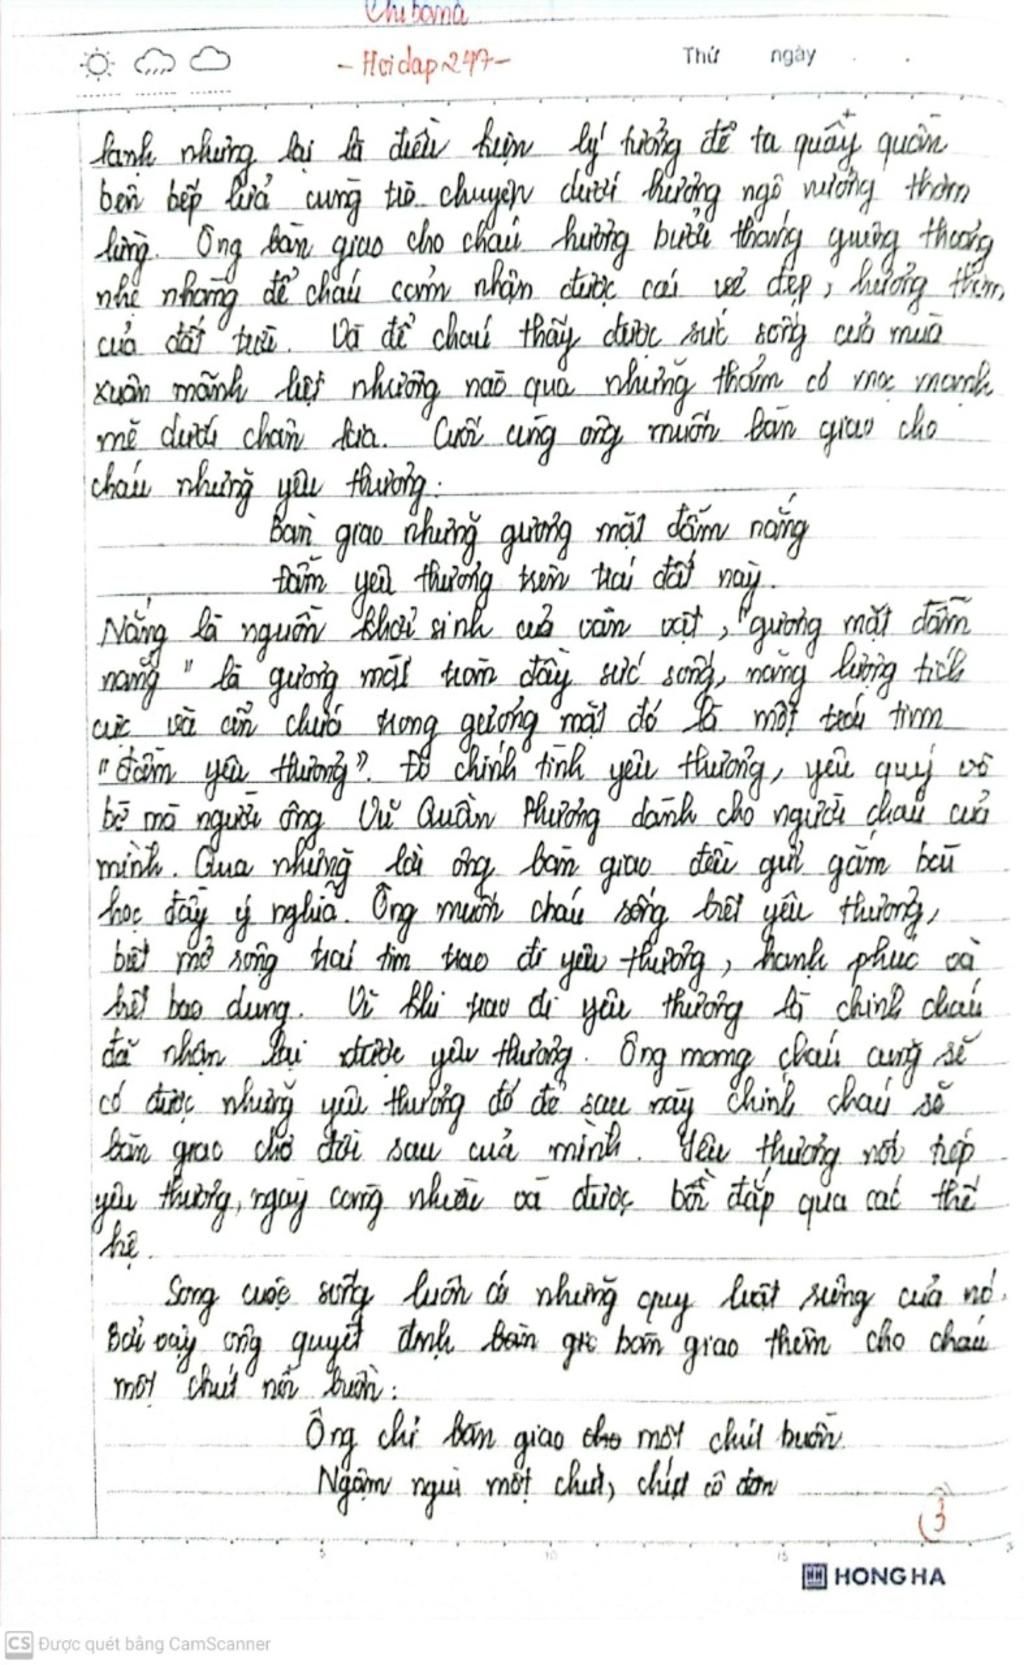 Chiboma
- Hoidap247-
Thứ ngày
lạnh nhưng lại là điều kiện lý tưởng để ta quây quần
bên bếp lửa cùng trò chuyện dưới hương ngô nướng thơm
lừng. Ông bàn giao cho cháu hương bưởi tháng giêng thoảng
nhẹ nhàng để cháu cảm nhận được cái vẻ đẹp, hương thơm,
của đất trời. Và để cháu thấy được sức sống của mùa
xuân mãnh liệt nhường nào qua những thảm cỏ mọc mạnh
mẽ dưới chân kia. Cuối cùng ông muốn bàn giao cho
cháu những yêu thương:
Bàn giao những gương mặt đẫm nắng
Đẫm yêu thương trên trái đất này.
Nắng là nguồn khởi sinh của vạn vật, "gương mặt đẫm
nắng" là gương mặt tràn đầy sức sống, năng lượng tích
cực và ẩn chứa trong gương mặt đó là một trái tim
"đẫm yêu thương". Đó chính tình yêu thương, yêu quý vô
bờ mà người ông Vũ Quần Phương dành cho người cháu của
mình. Qua những lời ông bàn giao đều gửi gắm bài
học đầy ý nghĩa. Ông muốn cháu sống biết yêu thương,
biết mở rộng trái tim trao đi yêu thương, hạnh phúc và
biết bao dung. Vì khi trao đi yêu thương là chính cháu
đã nhận lại được yêu thương. Ông mong cháu cũng sẽ
có được những yêu thương đó để sau này chính cháu sẽ
bàn giao cho đời sau của mình. Yêu thương nối tiếp
yêu thương, ngày càng nhiều và được bồi đắp qua các thế
hệ.
Song cuộc sống luôn có những quy luật riêng của nó.
Bởi vậy ông quyết định bàn bàn giao thêm cho cháu
một chút nỗi buồn:
Ông chỉ bàn giao cho một chút buồn
Ngậm ngùi một chút, chút cô đơn
3
HONG HA
CS Được quét bằng CamScanner